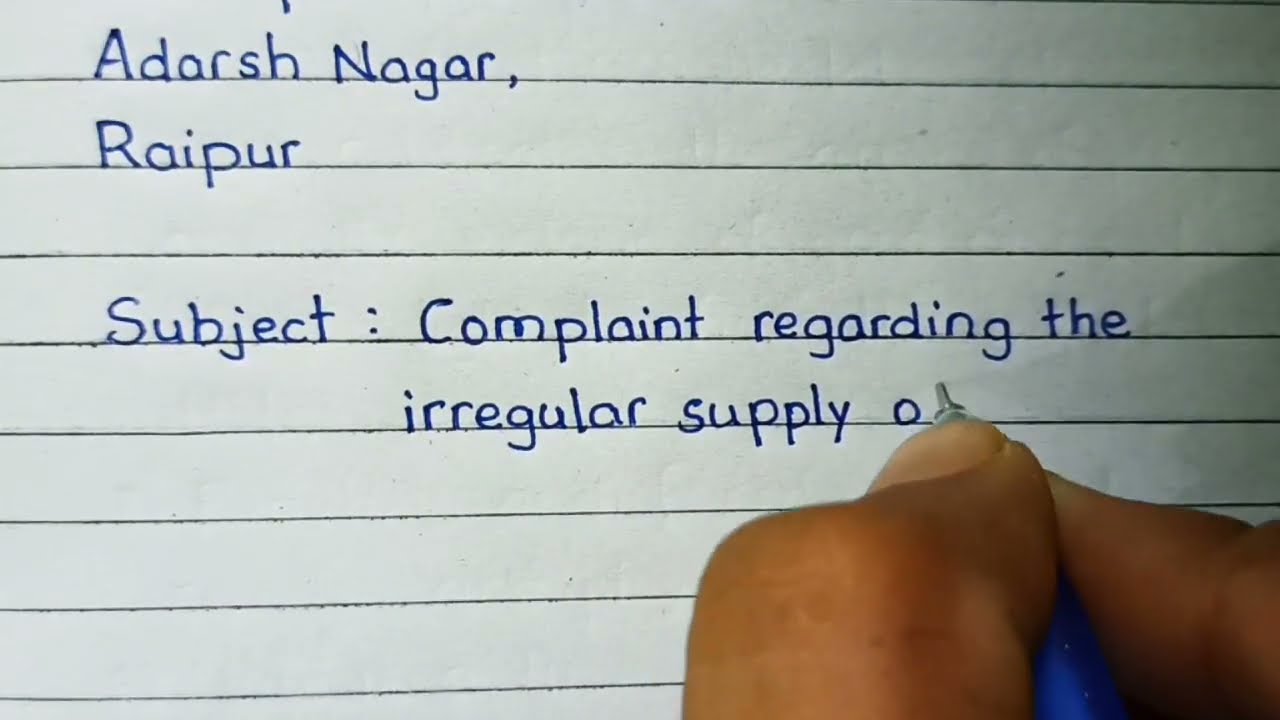 Adarsh Nagar,
Raipur
Subject : Complaint regarding the
irregular supply o